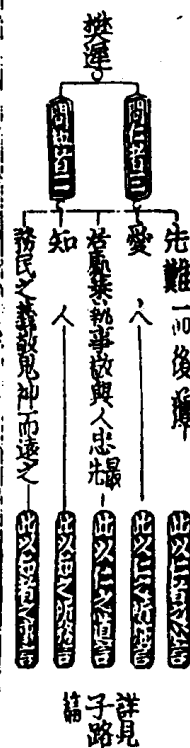 樊遲
問仁者三
問知者二
先難而後獲
愛人
居處恭執事敬與人忠最先
知人
務民之義敬鬼神而遠之
此以仁者之心言
此以仁之所施言
此以仁之道言
此以知之所務言
此以知者之事言
詳見子路篇